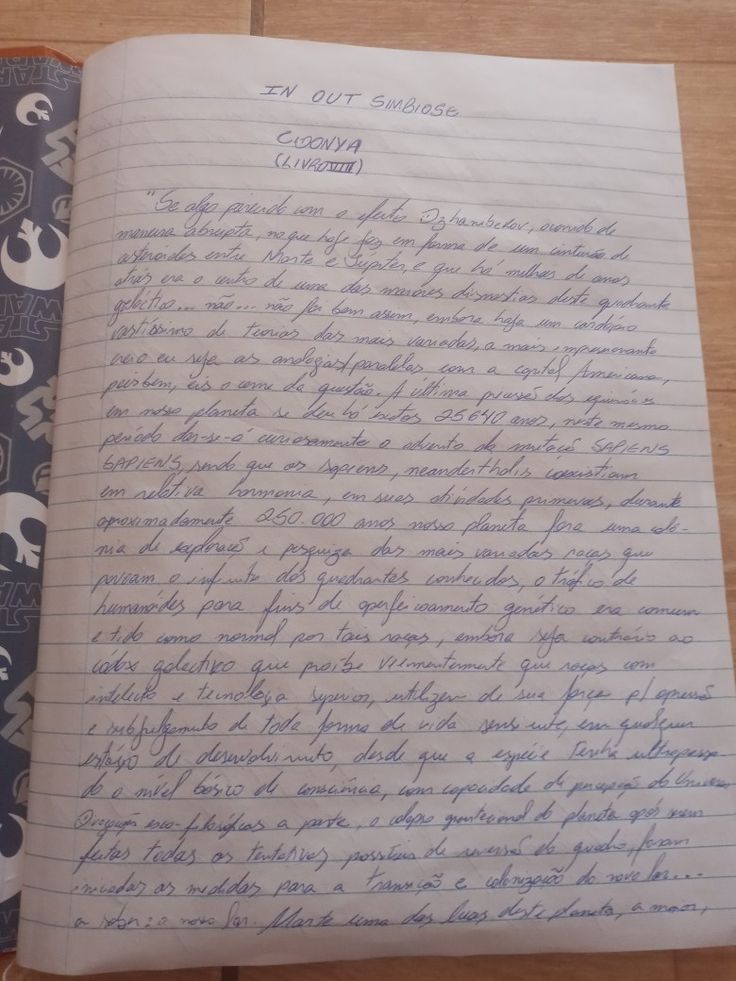 IN OUT SIMBIOSE
CIDONYA
(LIVRO VIII)
"Se algo parecido com o efeito Dzhanibekov, ocorrido de
maneira abrupta, no que hoje faz em forma de um cinturão de
asteroides entre Marte e Júpiter, e que há milhares de anos
atrás era o centro de uma das maiores dinastias deste quadrante
galáctico... não... não foi bem assim, embora haja um cardápio
vastissimo de teorias das mais variadas, a mais impressionante
creio eu seja as analogias/paralelas com a capital Americana,
pois bem, eis o cerne da questão. A última precessão dos equinócios
em nosso planeta se deu há exatos 25640 anos, neste mesmo
período dar-se-á curiosamente o advento da mutação SAPIENS
SAPIENS, sendo que os sapiens, neanderthalis coexistiam
em relativa harmonia, em suas atividades primevas, durante
aproximadamente 250.000 anos nosso planeta fora uma colô-
nia de exploração e pesquiza das mais variadas raças que
povoam o infinito dos quadrantes conhecidos, o tráfico de
humanóides para fins de aperfeicoamento genético era comum
e tido como normal por tais raças, embora seja contrário ao
códex galactico que proibe veementemente que raças com
intelecto e tecnologia superior, utilizem de sua força p/ opressão
e subjulgamento de toda forma de vida senciente, em qualquer
estágio de desenvolvimento, desde que a espécie tenha ultrapassa
do o nível básico de consciência, com capacidade de percepção do Universo
filosóficas a parte, o colapso gravitacional do planeta após serem
feitas todas as tentativas possíveis de reversão do quadro, foram
iniciadas as medidas para a transição e colonização do novo lar...
a saber: o novo lar. Marte uma das luas deste planeta, a maior,
STAR WARS